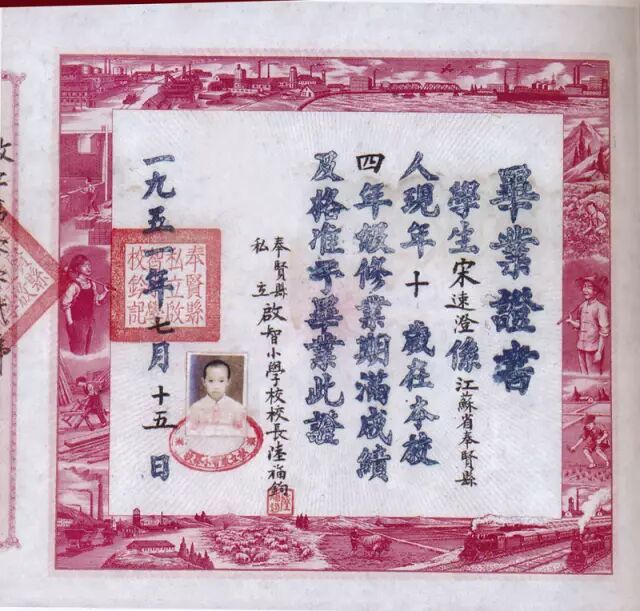 畢業證書
學生宋速澄係江蘇省奉賢縣
人現年十歲在本校
四年級修業期滿成績
及格准予畢業此證
奉賢縣
私立啟智小學校校長陸福鈞
一九五一年七月十五日
奉賢縣
私立啟
智小學
校鈐記